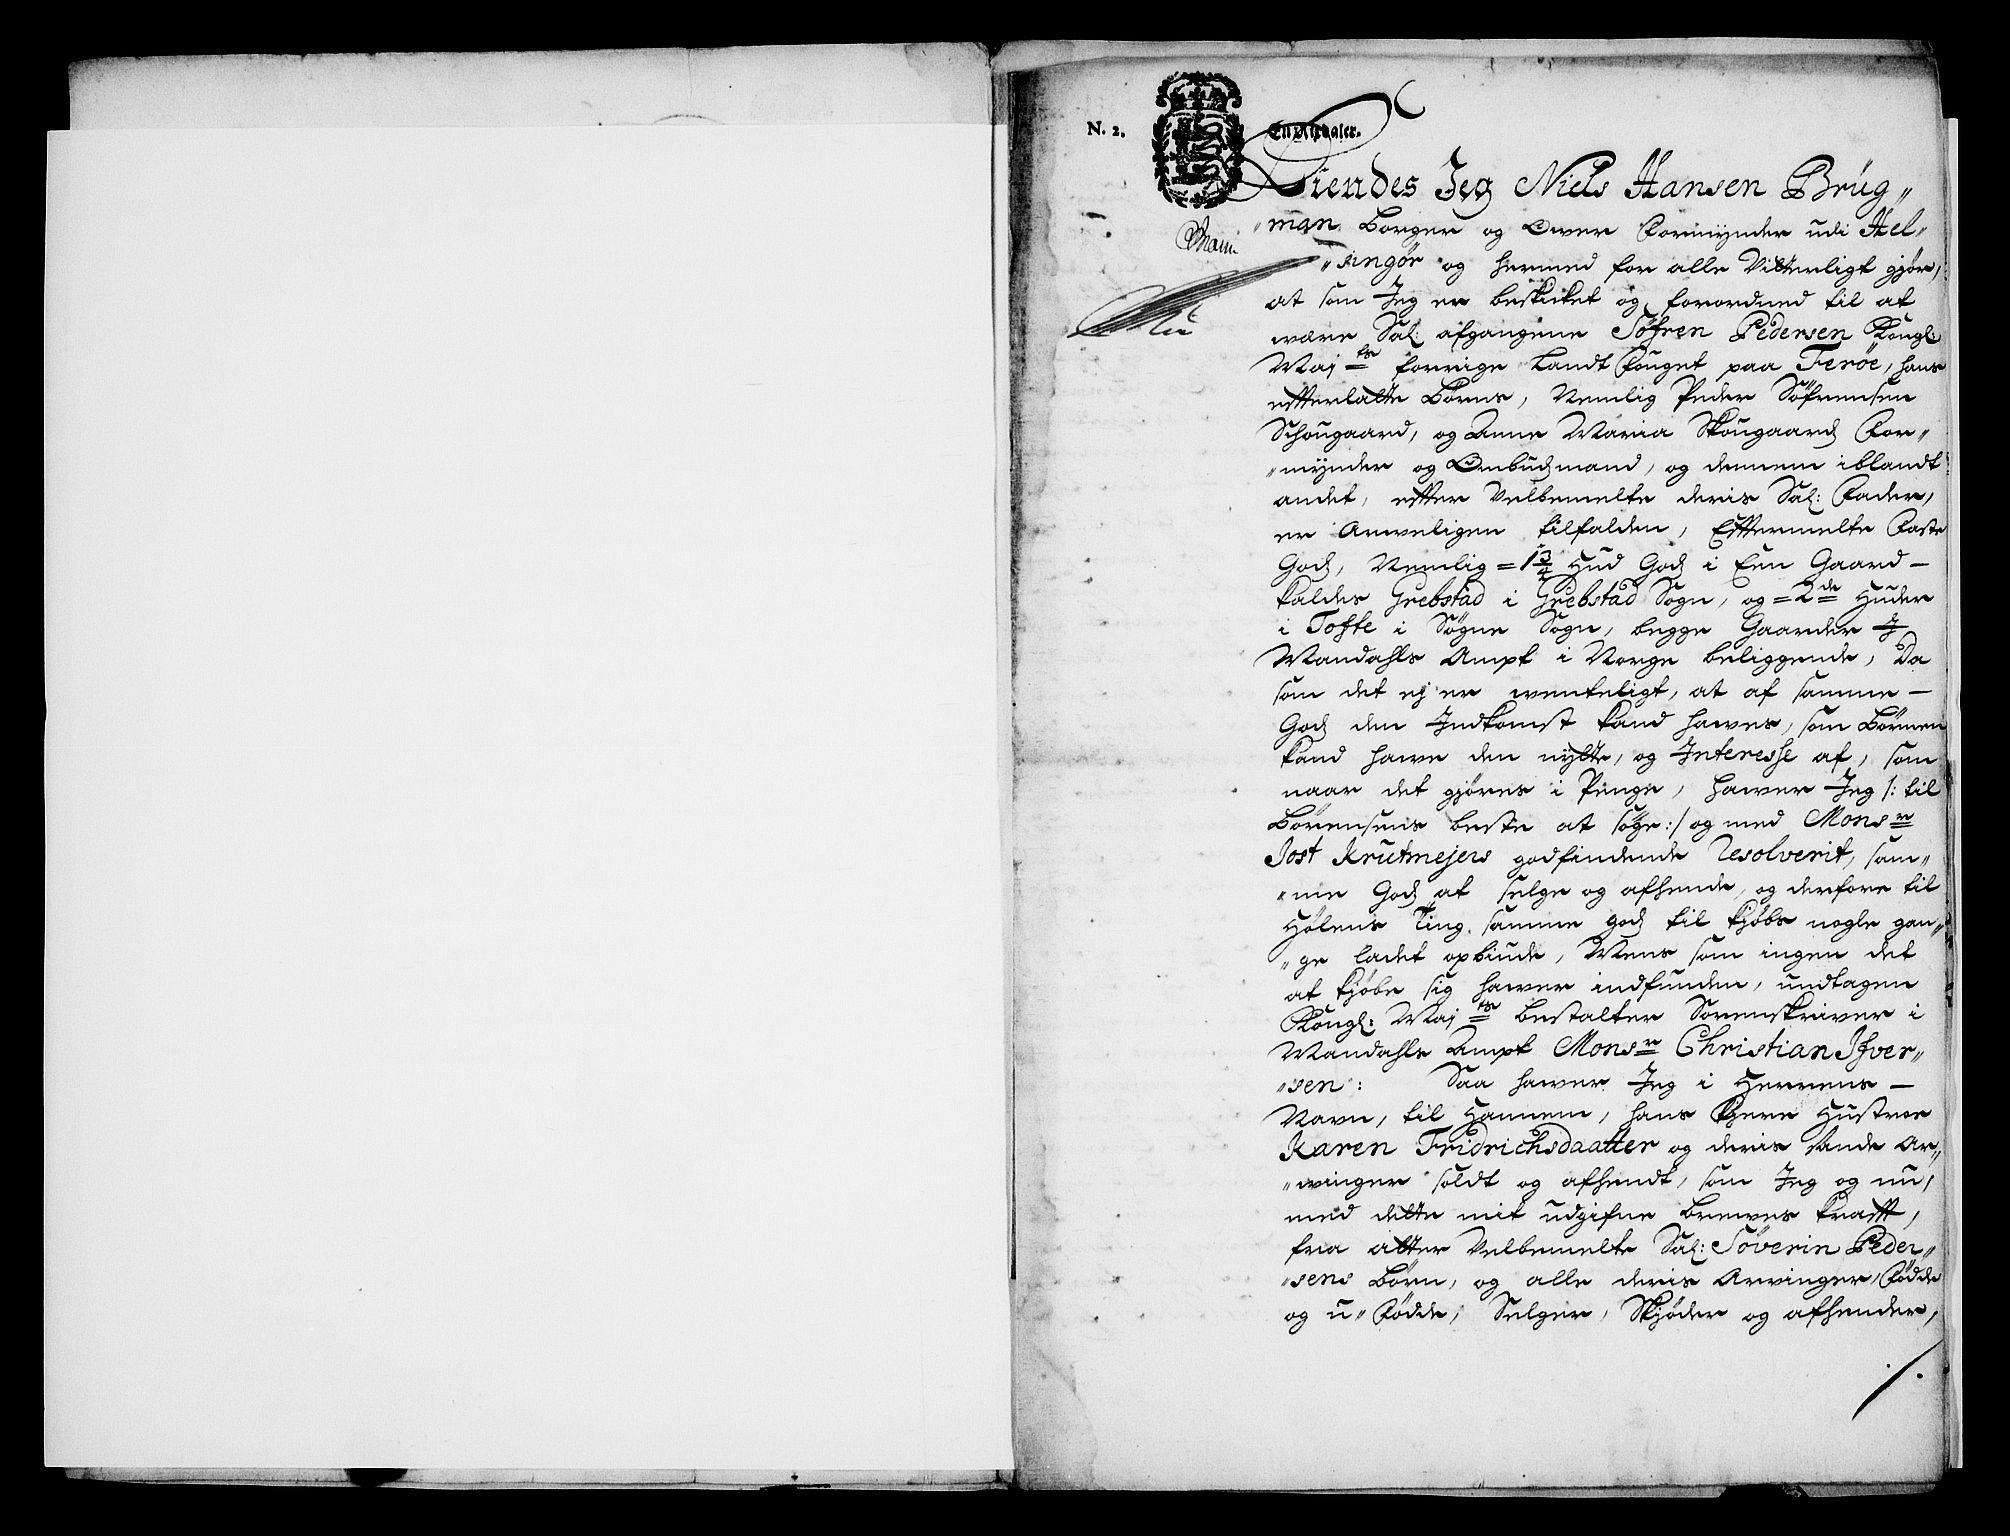 N. 2.
En Rixdaler.
Kiendes Jeg Niels Hansen Brüg„
„man, Borger og Over Formynder udi Hel„
„singør og hermed for alle Vitterligt gjør,
at som Jeg er beskicket og forordned til at
være Sal: afgangene Søfren Pedersen Kongl:
Maj ts forrige Landt Fouget paa Ferøe, hans
effterlatte Børns, Nemlig Peder Søfrensen
Schougaard, og Anne Maria Skougaard For„
„mynder og Ombudsmand, og dennem iblandt
andet, effter Velbemelte deris Sal: Fader,
er Arweligen tilfalden, Efftermelte Faste
Gods, Nemlig = 1 3/4 Hud Gods i Een Gaard –
kaldes Grebstad i Grebstad Sogn, og = 2 de Huder
i Tofte i Søgne Sogn, begge Gaarder J
Mandahls Ampt i Norge beliggende, Da
som det ej er wenteligt, at af samme –
Gods den Indkomst kand hawes, som Børnen
kand hawe den nytte, og Interesse af, som
naar det gjøres i Penge, hawer Jeg /: til
Børensens beste at søge :/ og med Mons r
Jost Krutmejers godfindende Resolverit, sam„
„me Gods at selge og afhende, og derfore til
Hølens Ting, samme gods til kjøbs nogle gan„
„ge ladet opbiude, Mens som ingen det
at kjøbe sig hawer indfunden, undtagen
Kongl: Maj ts bestalter Sorenskriver i
Mandahls Ampt Mons r Christian Ifver„
„sen: Saa hawer Jeg i Herrens –
Navn, til Hannem, hans kjere Hustroe
Karen Fridrichsdaatter og deris Sande Ar„
„winger soldt og afhendt, som Jeg og nu,
med dette mit udgifne brewes krafft,
fra atter Velbemelte Sal: Søverin Peder„
„sens Børn, og alle deris Arwinger, Fødde
og u„Fødde, Selger, Skjøder og afhender,